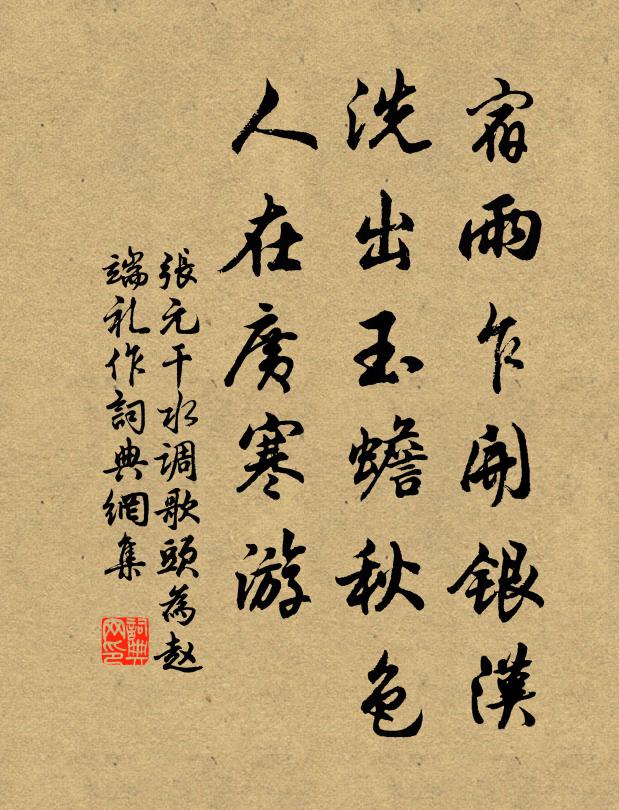 宿雨乍開銀漢
洗出玉蟾秋色
人在廣寒游
張元干水调歌頭為赵
端礼作詞典網集
詞典
网印